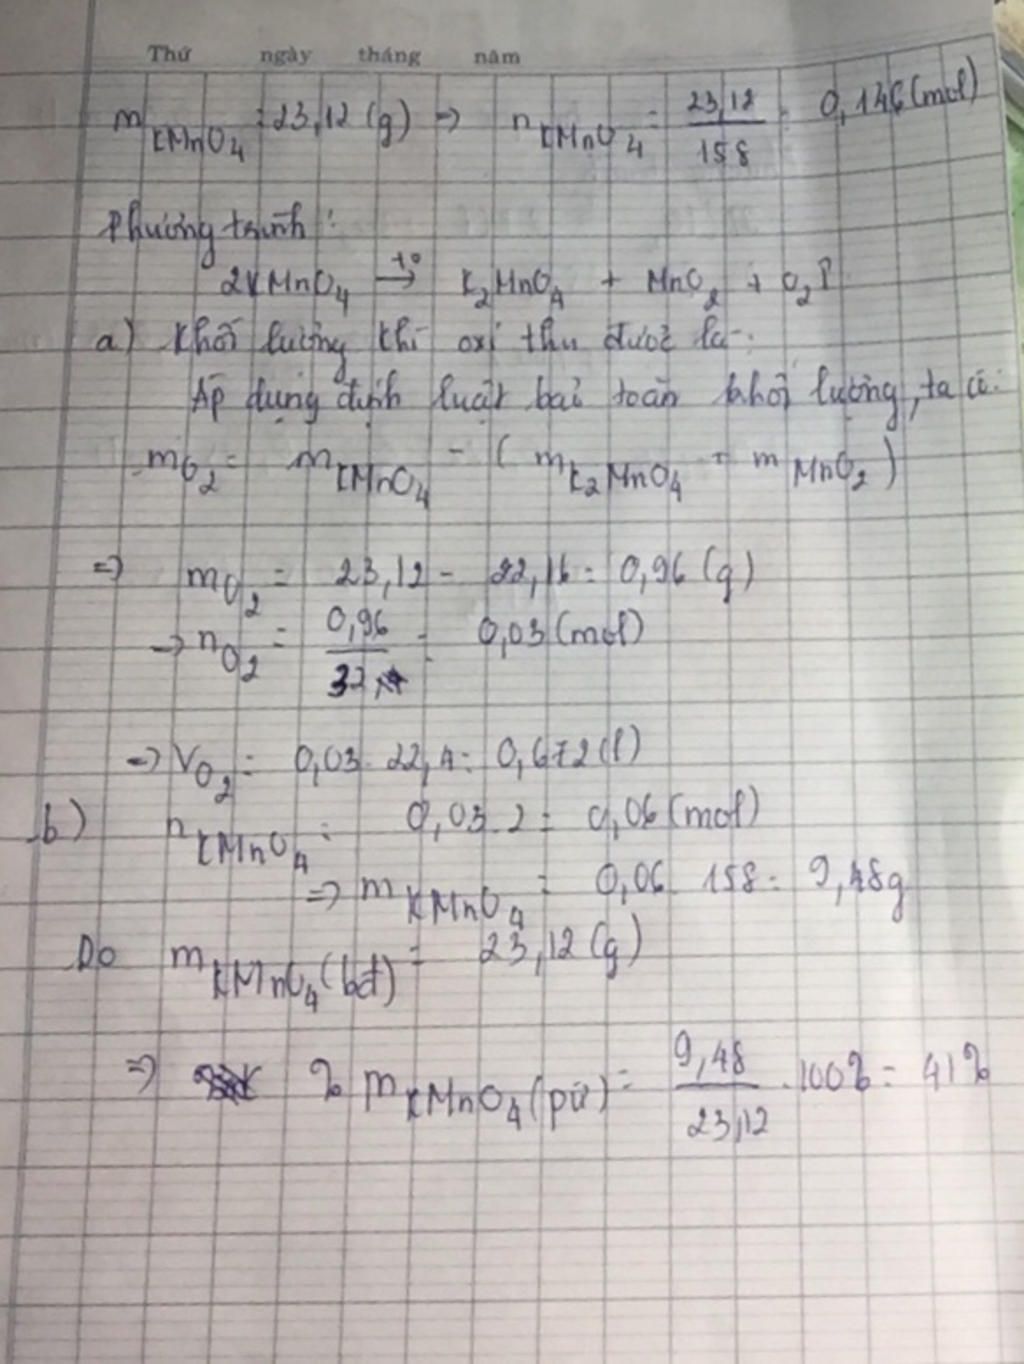 Thứ ngày tháng năm
m KMnO4 = 23,12 (g) => n KMnO4 = 23,12 / 158 = 0,146 (mol)
Phương trình:
2KMnO4 →t° K2MnO4 + MnO2 + O2↑
a) Khối lượng khí oxi thu được là:
Áp dụng định luật bảo toàn khối lượng, ta có:
mO2 = mKMnO4 - (mK2MnO4 + mMnO2)
=> mO2 = 23,12 - 22,16 = 0,96 (g)
→ nO2 = 0,96 / 32 = 0,03 (mol)
=> VO2 = 0,03 . 22,4 = 0,672 (l)
b) nKMnO4 = 0,03 . 2 = 0,06 (mol)
=> mKMnO4 = 0,06 . 158 = 9,48g
Do mKMnO4 (bđ) = 23,12 (g)
=> % mKMnO4 (pứ) = 9,48 / 23,12 . 100% = 41%